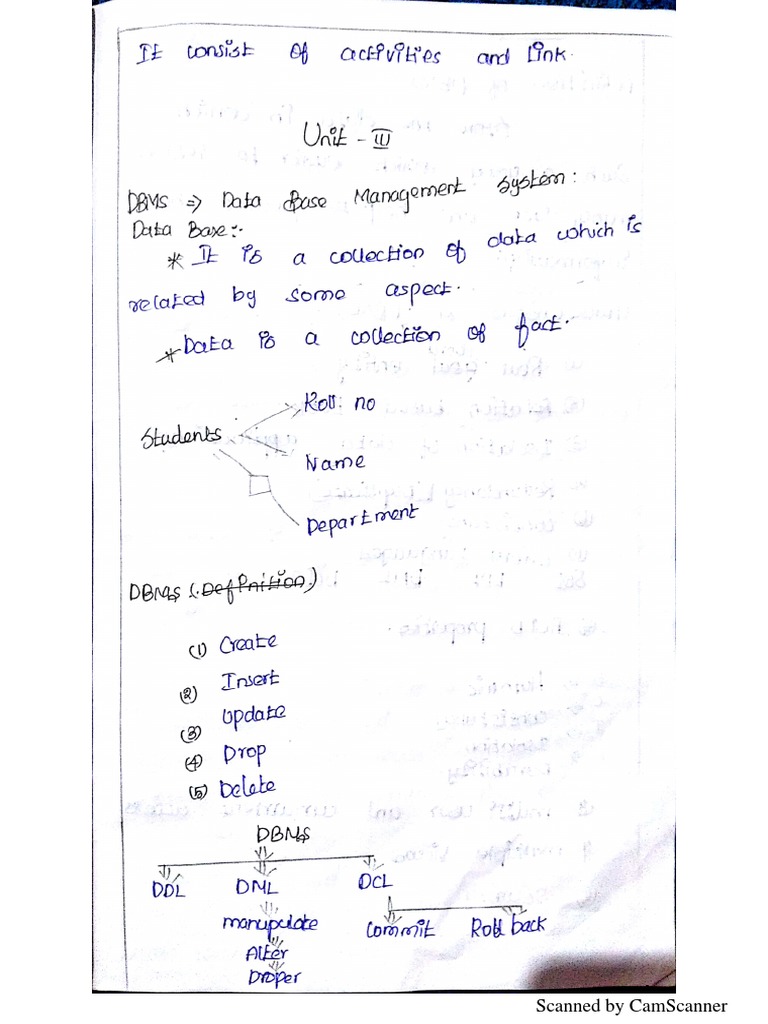 It consist of activities and link.
Unit - III
DBMS => Data Base Management System:
Data Base:-
* It is a collection of data which is
related by some aspect.
* Data is a collection of fact.
Students
Roll no
Name
Department
DBMS (Definition)
(1) Create
(2) Insert
(3) Update
(4) Drop
(5) Delete
DBMS
DDL DML DCL
manupulate Commit Roll back
Alter
Droper
Scanned by CamScanner